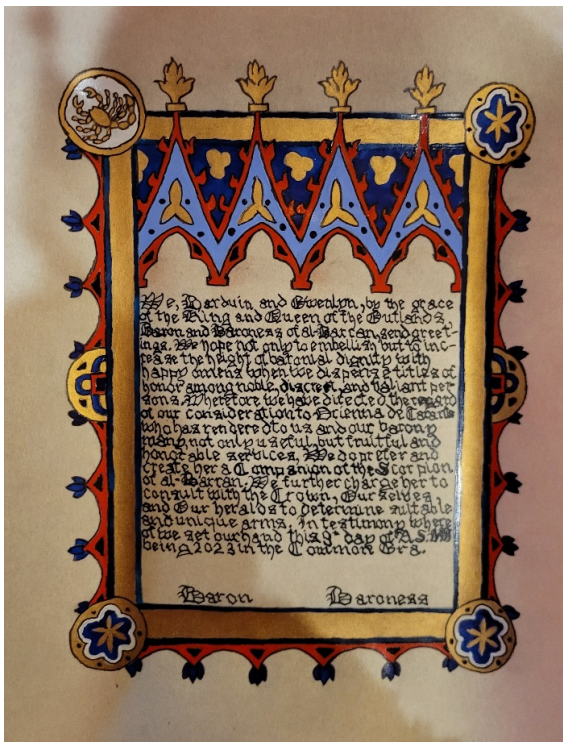 We, Barduin and Gwenlyn, by the grace
of the King and Queen of the Outlands,
Baron and Baroness of al-Barran, send greet-
ings. We hope not only to embellish but to inc-
rease the height of baronial dignity with
happy omens when we dispense titles of
honor among noble, discreet, and valiant per
sons. Wherefore we have directed the regard
of our consideration to Orienna de
who has rendered to us and our barony
many not only useful, but fruitful and
honorable services, We do prefer and
create her a Companion of the Scorpion
of al-Barran. We further charge her to
consult with the Crown, Our selves
and Our heralds to determine suitable
and unique arms. In testimony where
of we set our hand this 9th day of A.S.
being 2023 in the Common Era.
Baron Baroness